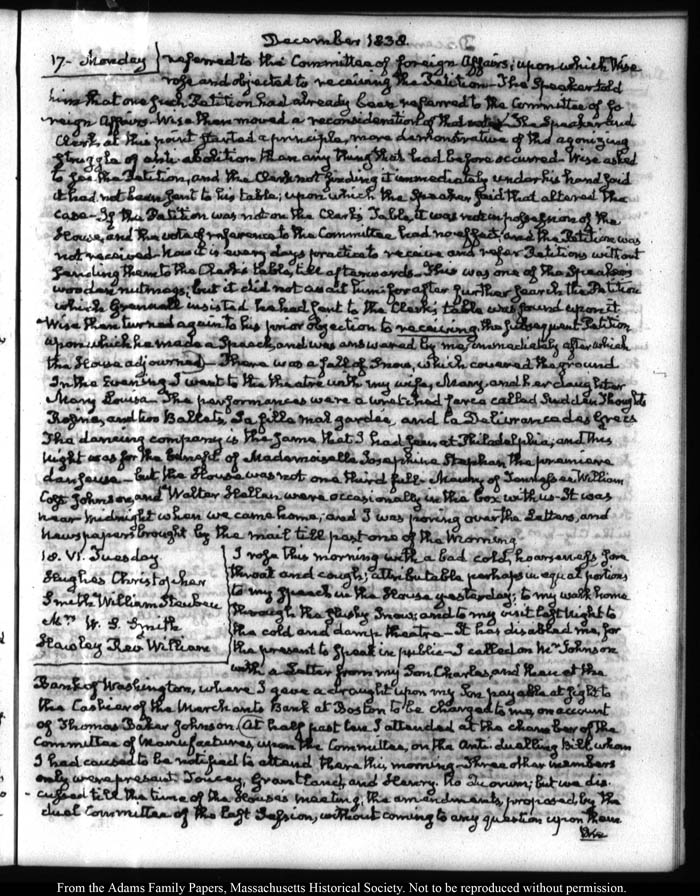 December 1838.
17. Monday referred to the Committee of foreign Affairs; upon which Wise
rose and objected to receiving the Petition—The Speaker told
him that one such Petition had already been referred to the Committee of fo
reign Affairs—Wise then moved a reconsideration of that The Speaker and
Clerk, at this point started a principle, more demonstrative of the agonizing
struggle of anti-abolition than any thing that had before occurred. Wise asked
to see the Petition, and the Clerk not finding it immediately under his hand said
it had not been sent to his table; upon which the Speaker said that altered the
case—If the Petition was not on the Clerk's Table, it was not in possession of the
House, and the vote of reference to the Committee had no effect; and the Petition was
not received. Now it is every day's practice to receive and refer Petitions without
sending them to the Clerk's table, till afterwards. This was one of the Speaker's
wooden nutmegs; but it did not avail him for after further search the Petition
which Grennell insisted he had sent to the Clerk's table was found upon it
Wise then turned again to his prior objection to receiving the subsequent Petition
upon which he made a Speech, and was answered by me, immediately after which
the House adjourned—There was a fall of Snow, which covered the ground
In the Evening I went to the theatre with my wife, Mary, and her daughter
Mary Louisa. The performances were a wretched farce called Sudden Thoughts
and two Ballets, La fille mal gardée, and la Delivrance des Grecs
The dancing company is the same that I had seen at Philadelphia; and this
night was for the benefit of Mademoiselle Josephine Stephan the premiere
danseuse—but the House was not one third full—Maury of Tennessee, William
Cost Johnson, and Walter Hellen were occasionally in the box with us—It was
near midnight when we came home; and I was poring over the Letters, and
Newspapers brought by the mail till past one of the Morning
18. VI. Tuesday.
Hughes Christopher
Smith William Steuben
Mrs W. S. Smith
Hawley Rev William
I rose this morning with a bad cold, hoarseness, sore
throat and cough; attributable perhaps in equal portions
to my Speech in the House yesterday; to my walk home
through the slushy Snow; and to my visit last Night to
the cold and damp theatre—It has disabled me, for
the present to speak in public—I called on Mr Johnson
with a Letter from my Son Charles, and then at the
Bank of Washington, where I gave a draught upon my Son payable at sight to
the Cashier of the Merchants Bank at Boston to be charged to me on account
of Thomas Baker Johnson. At half past ten I attended at the chamber of the
Committee of Manufactures, upon the Committee, on the Anti-duelling Bill, whom
I had caused to be notified to attend there this morning—Three other members
only were present. Toucey, Grantland, and Henry. No Quorum; but we dis-
cussed till the time of the House's meeting, the amendments, proposed, by the
duel Committee of the last Session, without coming to any question upon them
From the Adams Family Papers, Massachusetts Historical Society. Not to be reproduced without permission.